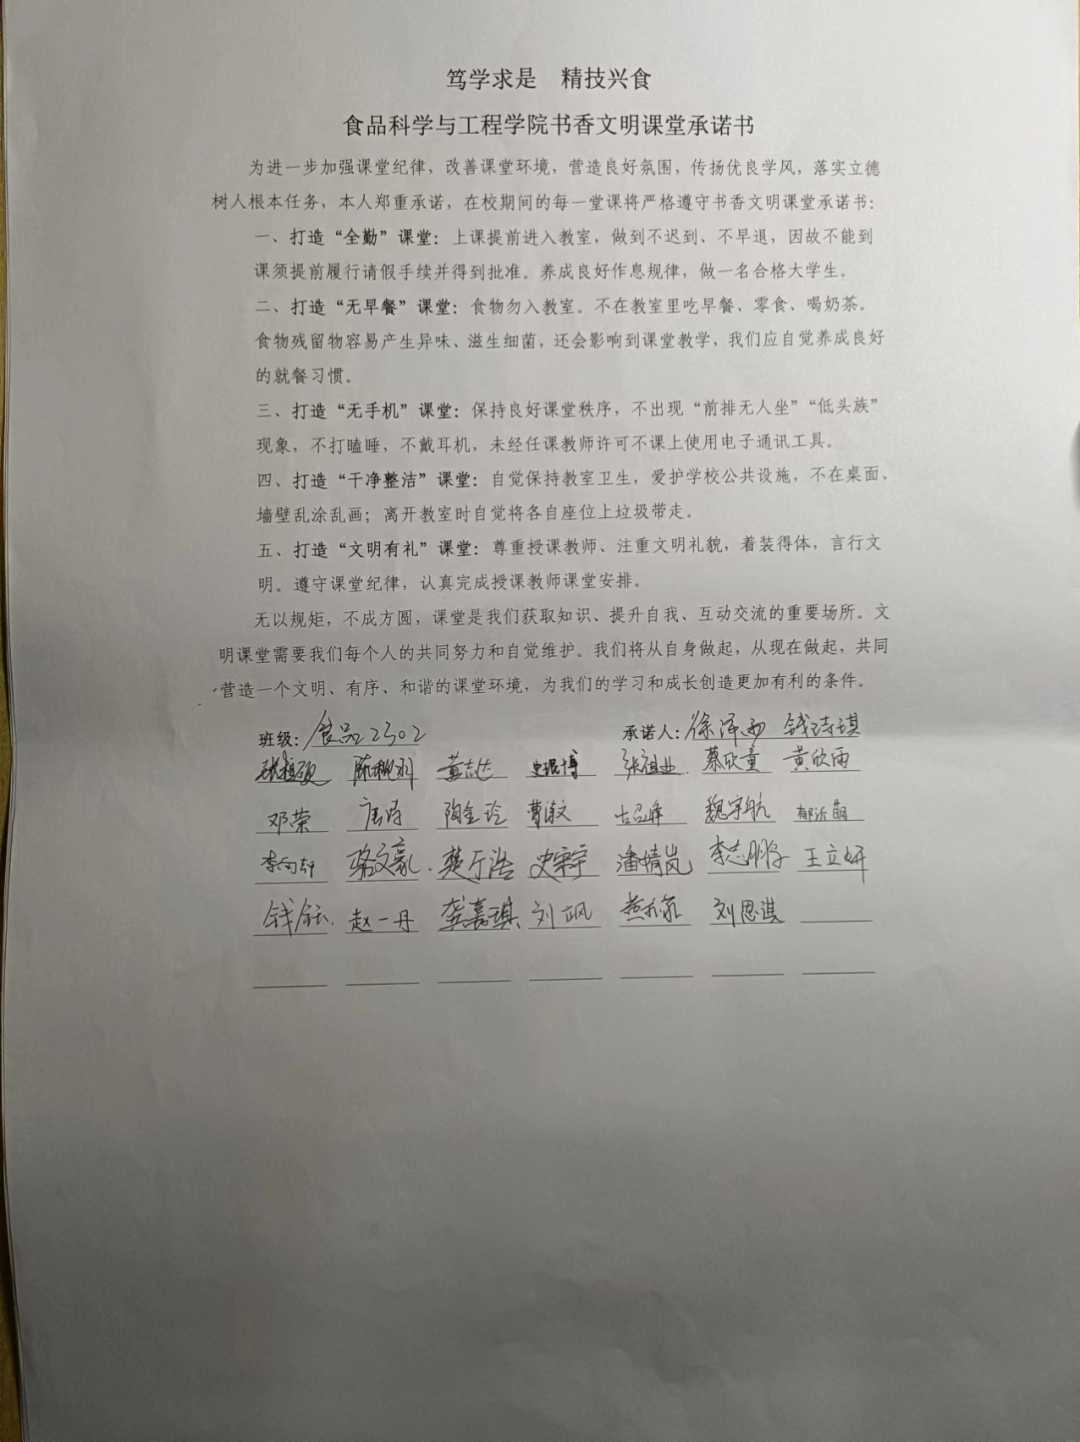 笃学求是 精技兴食
食品科学与工程学院书香文明课堂承诺书
为进一步加强课堂纪律，改善课堂环境，营造良好氛围，传扬优良学风，落实立德
树人根本任务，本人郑重承诺，在校期间的每一堂课将严格遵守书香文明课堂承诺书：
一、打造“全勤”课堂：上课提前进入教室，做到不迟到、不早退，因故不能到
课须提前履行请假手续并得到批准。养成良好作息规律，做一名合格大学生。
二、打造“无早餐”课堂：食物勿入教室。不在教室里吃早餐、零食、喝奶茶。
食物残留物容易产生异味、滋生细菌，还会影响到课堂教学，我们应自觉养成良好
的就餐习惯。
三、打造“无手机”课堂：保持良好课堂秩序，不出现“前排无人坐”“低头族”
现象，不打瞌睡，不戴耳机，未经任课教师许可不课上使用电子通讯工具。
四、打造“干净整洁”课堂：自觉保持教室卫生，爱护学校公共设施，不在桌面、
墙壁乱涂乱画；离开教室时自觉将各自座位上垃圾带走。
五、打造“文明有礼”课堂：尊重授课教师、注重文明礼貌，着装得体，言行文
明。遵守课堂纪律，认真完成授课教师课堂安排。
无以规矩，不成方圆，课堂是我们获取知识、提升自我、互动交流的重要场所。文
明课堂需要我们每个人的共同努力和自觉维护。我们将从自身做起，从现在做起，共同
营造一个文明、有序、和谐的课堂环境，为我们的学习和成长创造更加有利的条件。
班级：食品2302 承诺人：徐泽雨 钱诗琪
黄志达 史琨博 张祖业 慕欣童 黄欣雨
邓荣 唐诗 陶金玲 曹溦 魏宇航
骆文豪 樊于浩 史宇 潘婧岚 李志鹏 王立妍
钱钰 赵一丹 龚嘉琪 刘飒 刘思淇